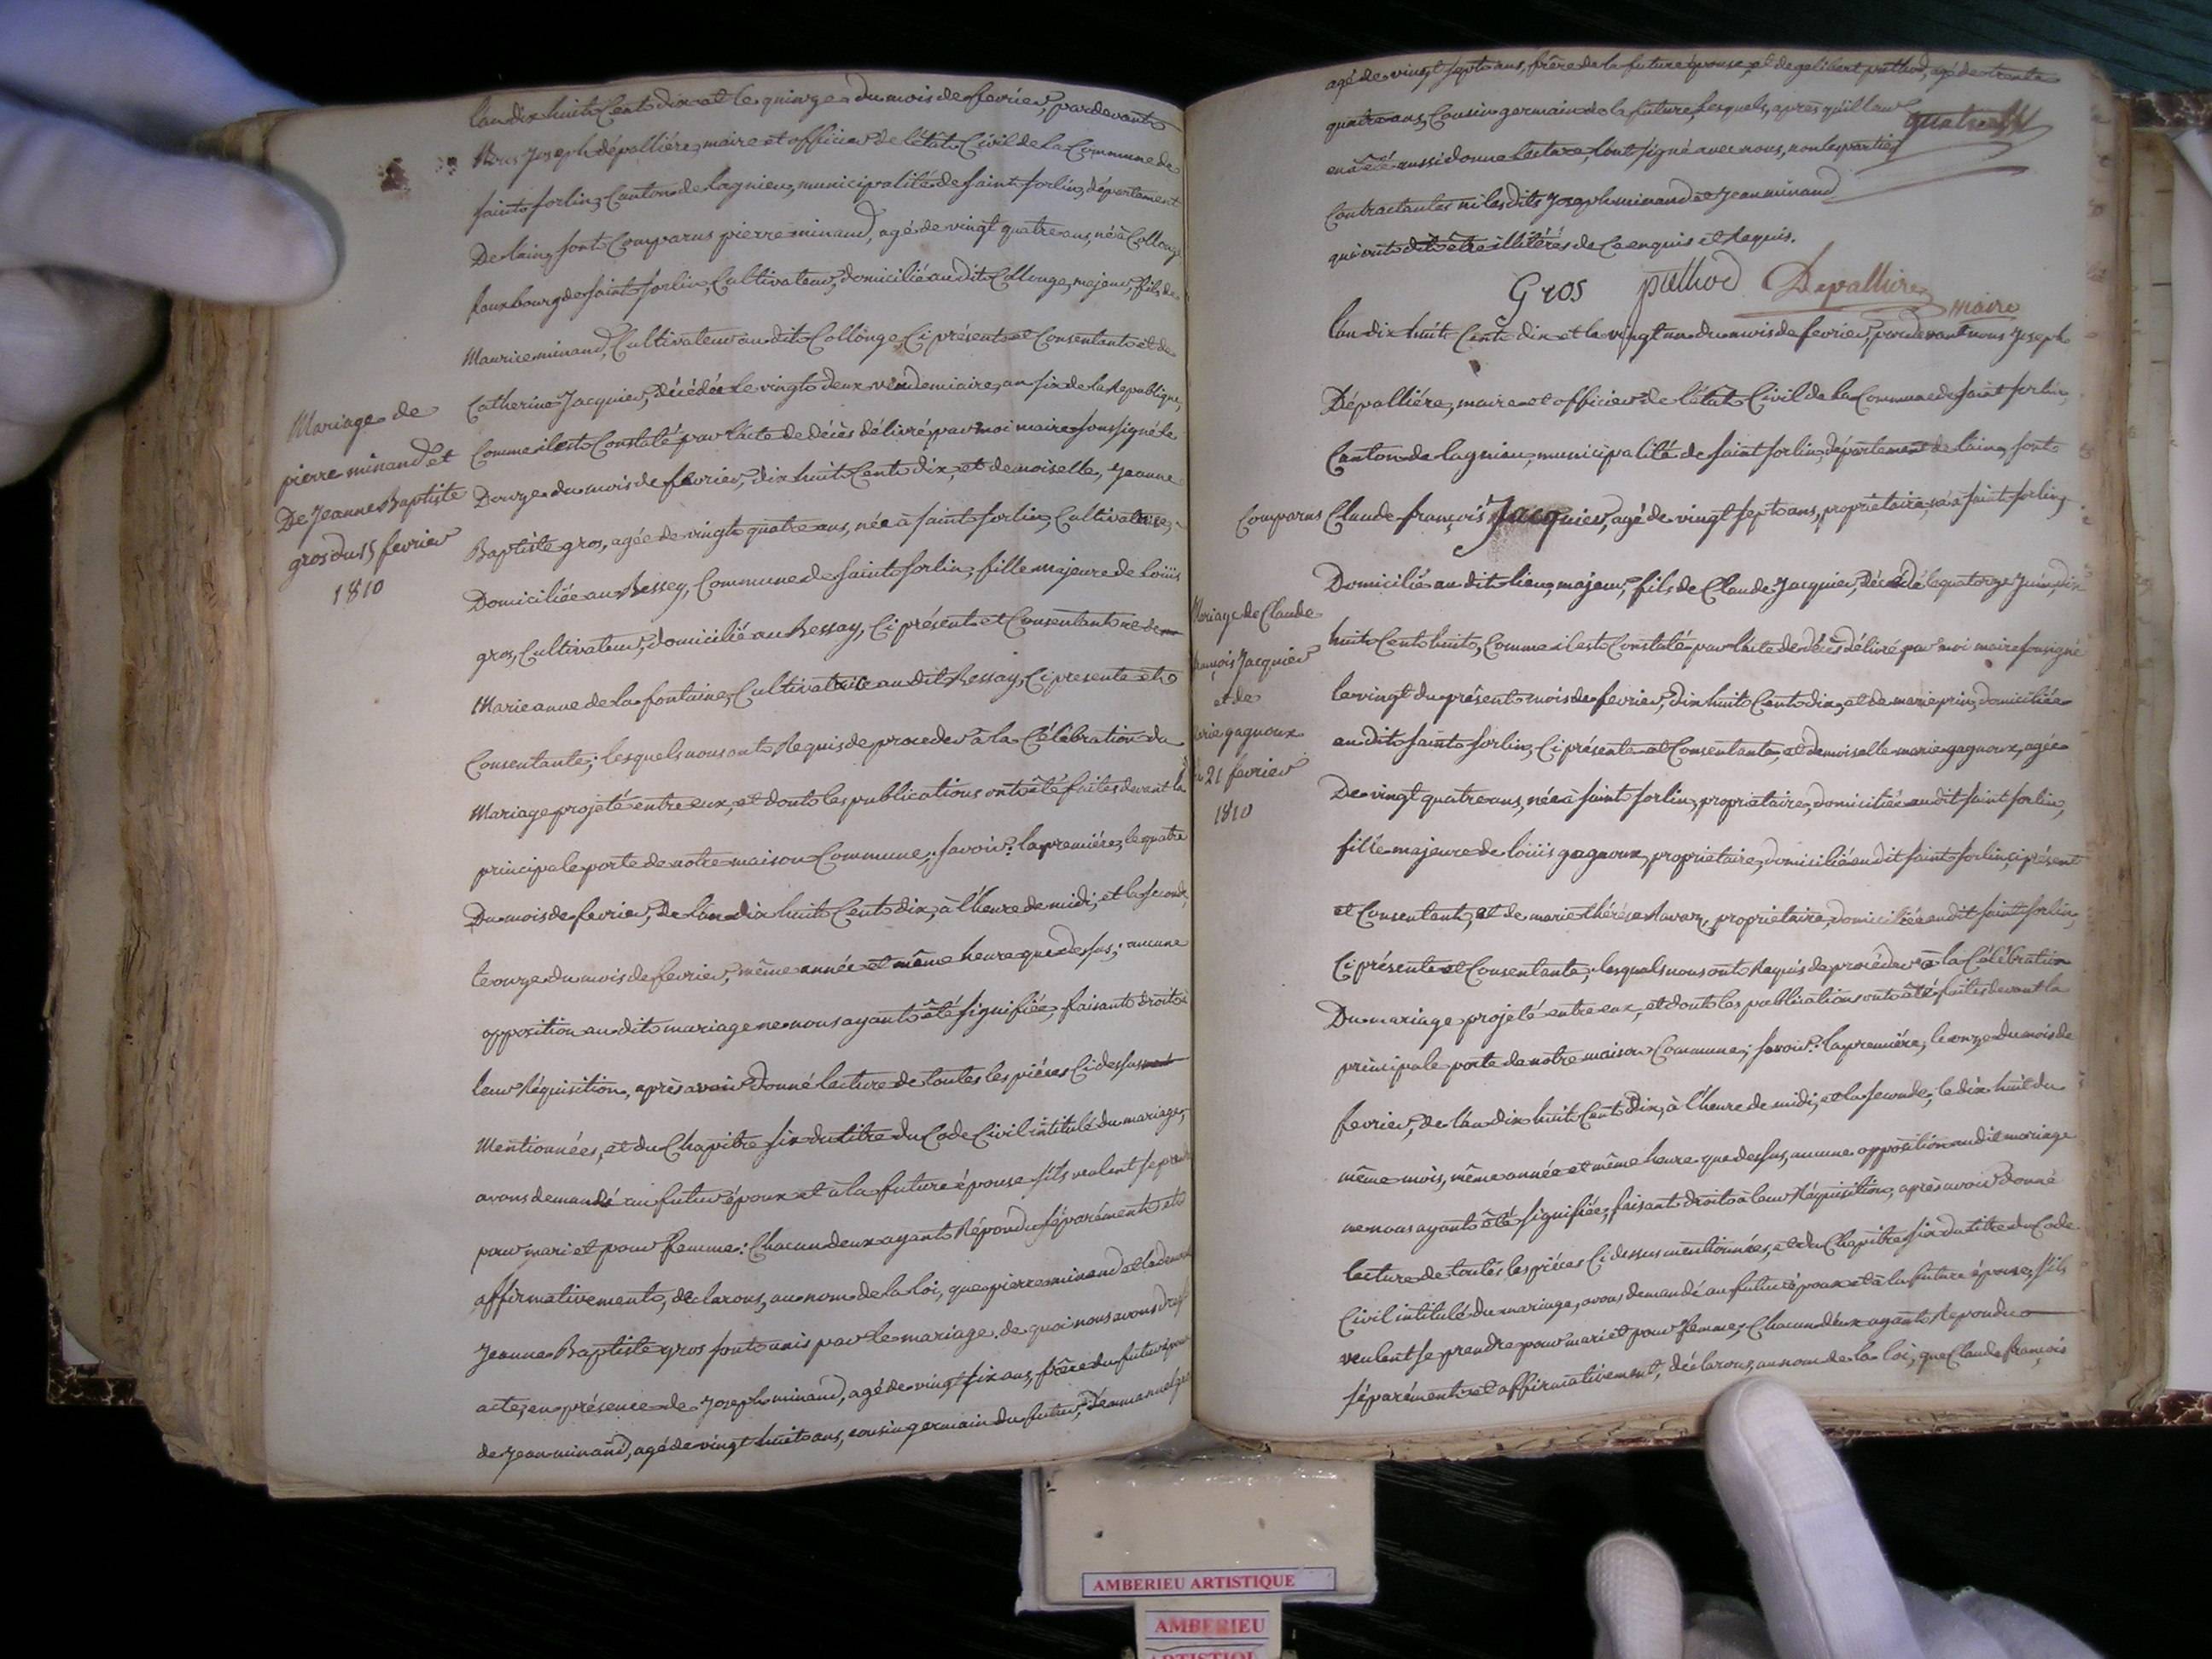 lan dix huit Cent dix et le quinze du mois de fevrier, pardevant
Nous Joseph dépalliére, maire et officier de l'êtat Civil de la Commune de
saint sorlin, Canton de lagnieu, municipalité de saint sorlin, département
De lain, sont Comparus pierre minand, agé de vingt quatre ans, né à Collonge
fauxbourg de saint sorlin, Cultivateur, domicilié au dit Collonge, majeur, fils de
Maurice minand, Cultivateur au dit Collonge, Ci présent et Consentant et de
Catherine Jacquier, décédée le vingt deux vendemiaire, an six de la Republique,
Comme il est Constaté par l'acte de décès délivré par moi maire soussigné le
Douze du mois de fevrier, dix huit Cent dix, et demoiselle, Jeanne
Baptiste gros, agée de vingt quatre ans, née à saint sorlin, Cultivatrice,
Domiciliée au Bessey, Commune de saint sorlin, fille majeure de loüis
gros, Cultivateur, domicilié au Bessay, Ci présent et Consentant et de
Marie anne de la fontaine, Cultivatrice au dit Bessay, Ci presente et
Consentante; lesquels nous ont Requis de proceder à la Célébration du
Mariage projeté entre eux, et dont les publications ont êté faites devant la
principale porte de notre maison Commune; savoir: la premiére, le quatre
Du mois de fevrier, De l'an dix huit Cent dix, à l'heure de midi, et la seconde,
le onze du mois de fevrier, même année et même heure que dessus; aucune
opposition au dit mariage ne nous ayant êté signifiée, faisant droit à
leur Réquisition, après avoir donné lecture de toutes les piéces Ci dessus
Mentionnées, et du Chapitre six du titre du Code Civil intitulé du mariage,
avons demandé au futur époux et à la future épouse s'ils veulent se prendre
pour mari et pour femme: Chacun deux ayant Répondu séparément et
affirmativement, declarons, au nom de la loi, que pierre minand et la demoiselle
Jeanne Baptiste gros sont unis par le mariage. de quoi nous avons dressé
acte, en présence de Joseph minand, agé de vingt six ans, frère du futur époux
de Jean minand, agé de vingt huit ans, cousin germain du futur, d'emmanuel gros
Mariage de
pierre minand et
De Jeanne Baptiste
gros du 15 fevrier
1810
agé de vingt sept ans, frère de la future épouse, et de galibert puthod, agé de trente
quatre ans, Cousin germain de la future, lesquels, après qu'il leur
en a êté aussi donné lecture, l'ont signé avec nous, non les parties
Contractantes ni les dits Joseph minand et Jean minand
qui ont dit être illitérés de Ce enquis et Requis.
Gros puthod Depalliere
maire
lan dix huit Cent dix et le vingt un du mois de fevrier, pardevant nous Joseph
Dépalliére, maire et officier de l'êtat Civil de la Commune de saint sorlin,
Canton de lagnieu, municipalité de saint sorlin, département de lain, sont
Comparus Claude françois Jacquier, agé de vingt sept ans, propriétaire, né à saint sorlin,
Domicilié au dit lieu, majeur, fils de Claude Jacquier, décédé le quatorze Juin, dix
huit Cent huit, Comme il est Constaté par l'acte de décès délivré par moi maire sousigné
le vingt du présent mois de fevrier, dix huit Cent dix, et de marie prin, domiciliée
au dit saint sorlin, Ci présente et Consentante, et demoiselle marie gagnoux, agée
De vingt quatre ans, née à saint sorlin, propriétaire, domiciliée au dit saint sorlin,
fille majeure de loüis gagnoux, propriétaire, domicilié au dit saint sorlin, ci présent
et Consentant, et de marie thérèse Ravoz, proprietaire, domiciliée au dit saint sorlin,
Ci présente et Consentante; lesquels nous ont Requis de procéder à la Célébration
Du mariage projeté entre eux, et dont les publications ont êté faites devant la
principale porte de notre maison Commune; savoir: la premiére, le onze du mois de
fevrier, de l'an dix huit Cent Dix, à l'heure de midi, et la seconde, le dix huit du
même mois, même année et même heure que dessus, aucune opposition au dit mariage
ne nous ayant êté signifiée, faisant droit à leur Réquisition, après avoir donné
lecture de toutes les piéces Ci dessus mentionnées, et du Chapitre six du titre du Code
Civil intitulé du mariage, avons demandé au futur époux et à la future épouse, s'ils
veulent se prendre pour mari et pour femme; Chacun deux ayant Repondu
séparément et affirmativement, déclarons, au nom de la loi, que Claude françois
Mariage de Claude
françois Jacquier
et de
marie gagnoux
du 21 fevrier
1810
AMBERIEU ARTISTIQUE
AMBERIEU
ARTISTIQUE